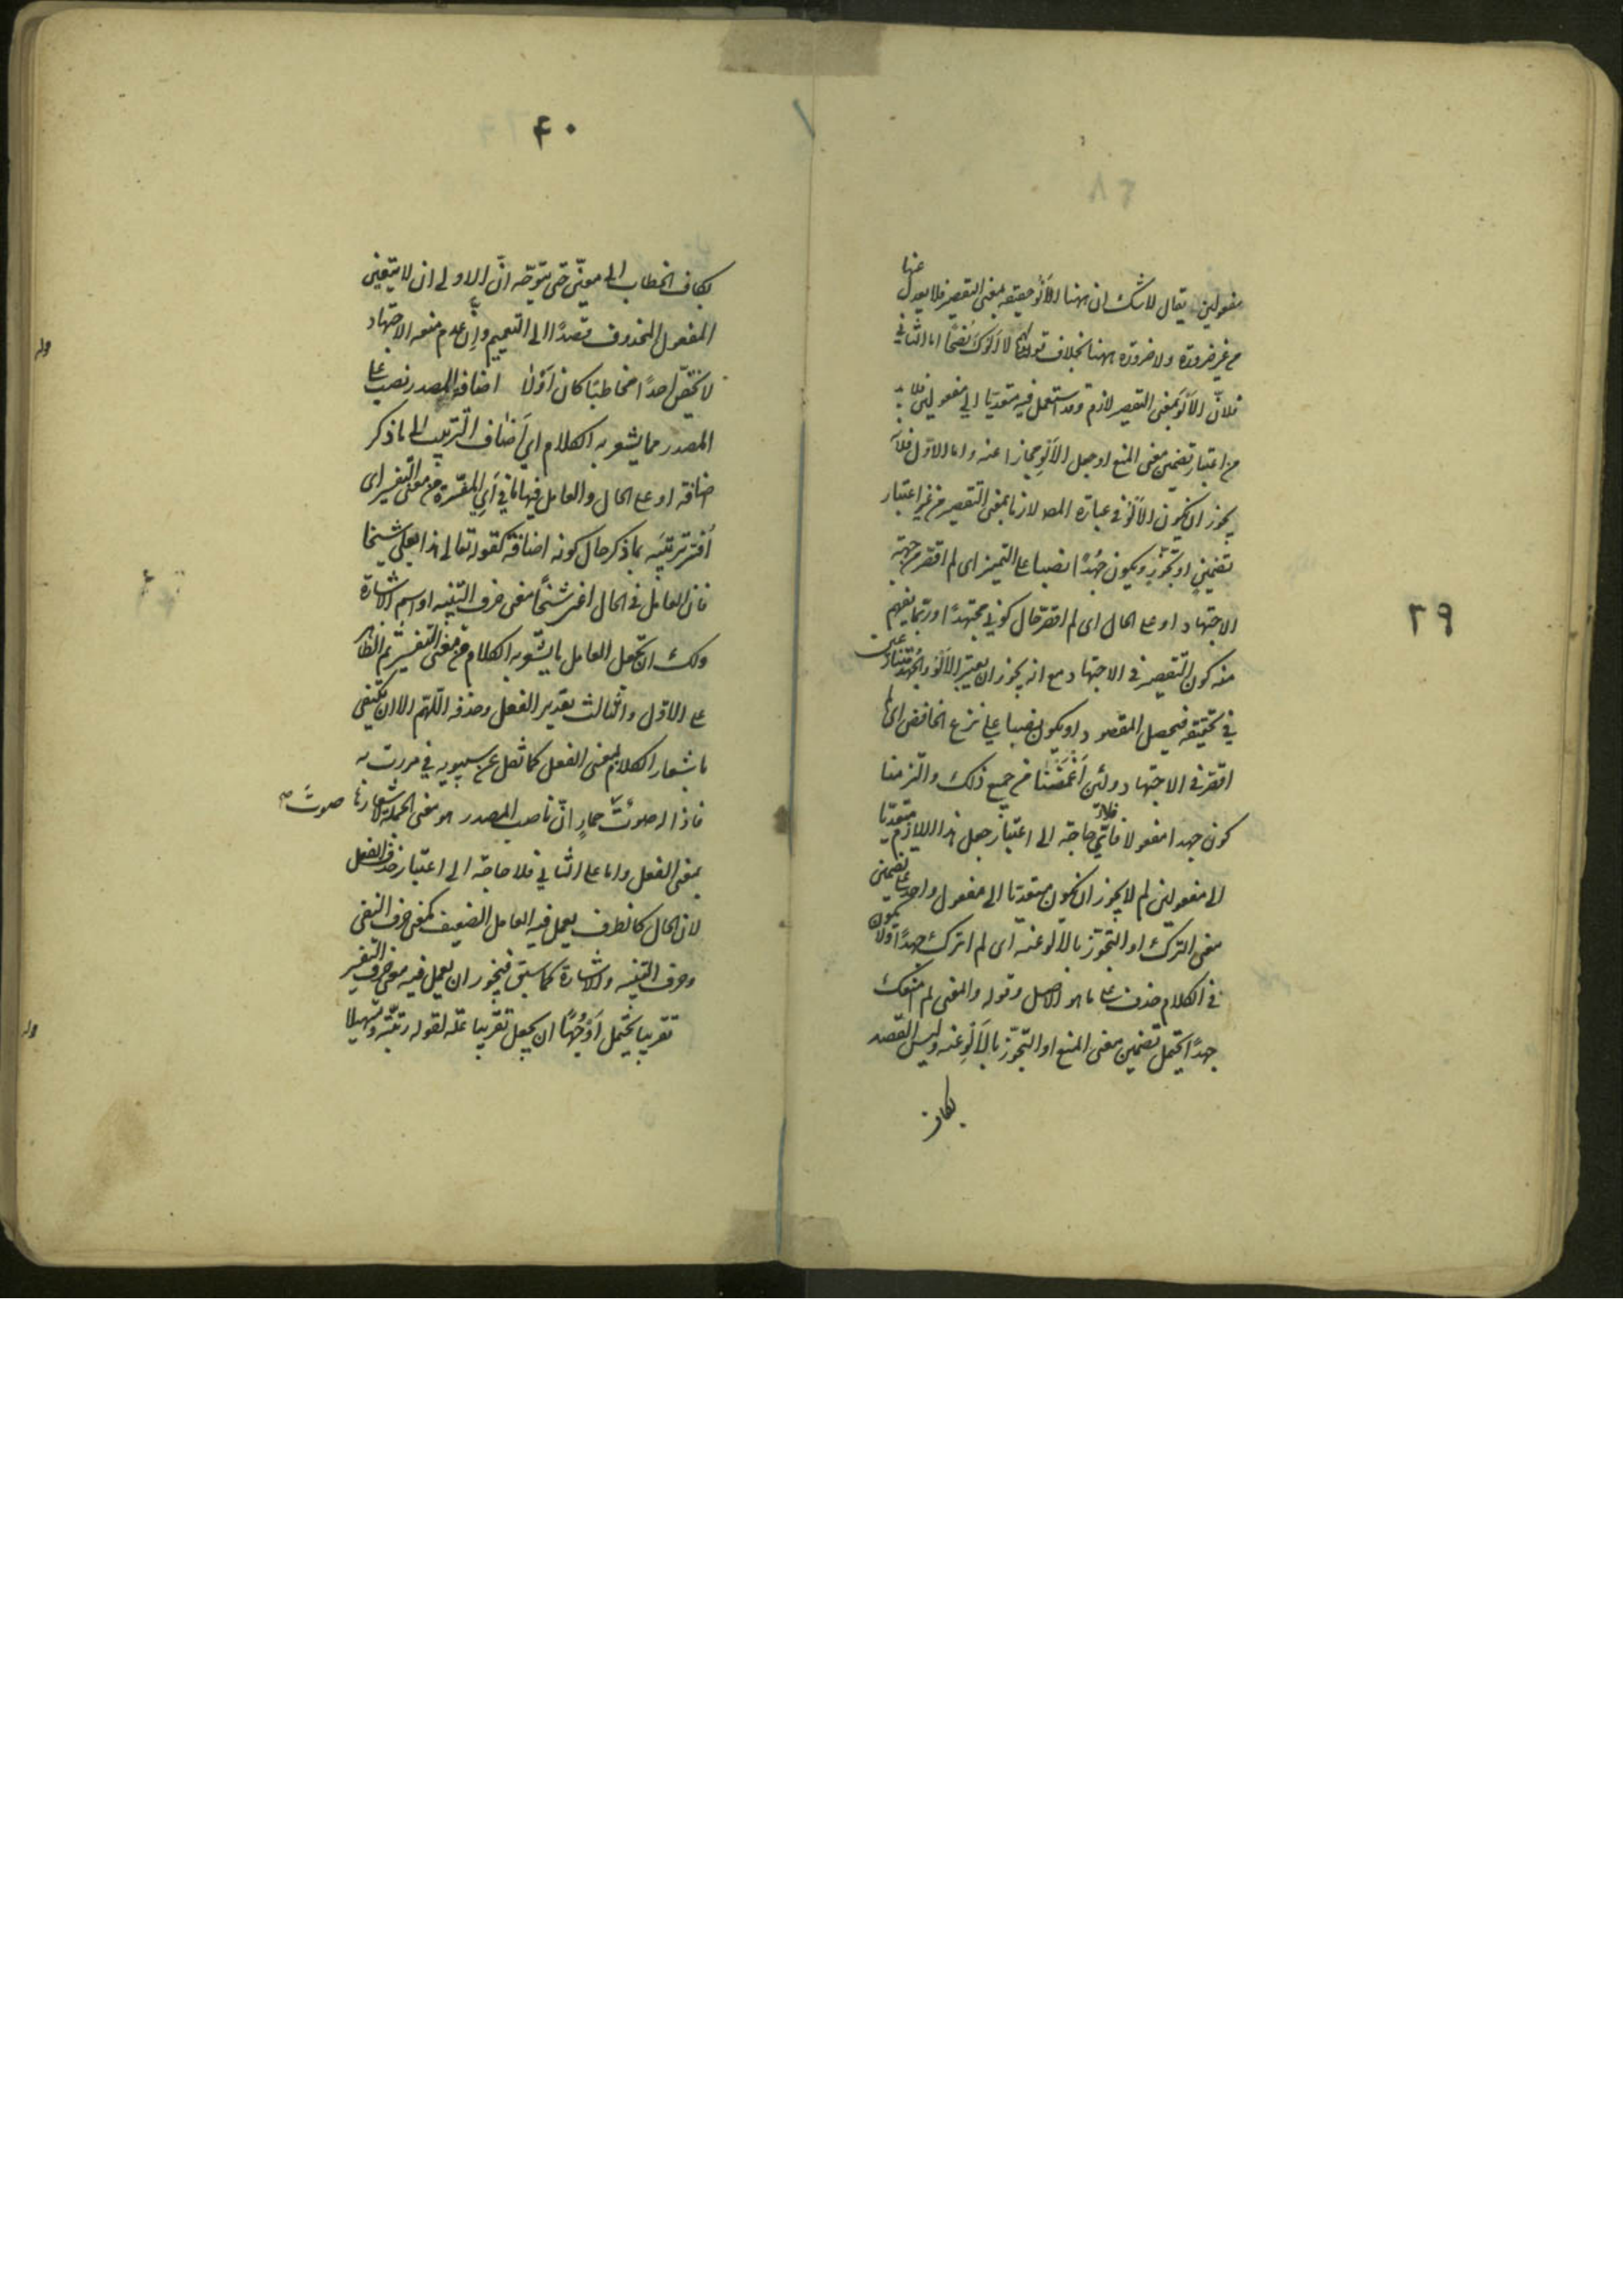 ٣٩
مفعولين يقال لا شك ان ههنا الألو حقيقة بمعنى التقصير فلا يعدل عنها
من غير ضرورة ولا ضرورة ههنا بخلاف قولهم لا آلوك نُصْحًا اما الثاني
فلانّ الألو بمعنى التقصير لازم وقد استعمل فيه متعديا الى مفعولين فلا بد
من اعتبار تضمين معنى المنع او جعل الألو مجازا عنه واما الاول فلا
يجوز ان يكون الألو في عبارة المص لازما بمعنى التقصير من غير اعتبار
تضمين او تجوّز ويكون جُهْدًا نصبا على التميز اى لم اقصر من جهة
الاجتهاد او على الحال اى لم اقصر حال كوني مجتهدًا وربما يفهم
منه كون التقصير في الاجتهاد مع انه يجوز ان يعتبر الألو والجهد
في تحقيقه فيحصل المقصود او يكون نصبا على نزع الخافض اى لم
اقصر في الاجتهاد ولئن اغمضنا من جميع ذلك والتزمنا
كون جهدا مفعولا فلا فأيّ حاجة الى اعتبار جعل هذا اللازم متعديا
الى مفعولين لم لا يجوز ان يكون متعديا الى مفعول واحد على تضمين
معنى الترك او التجوّز بالألو عنه اى لم اترك جهدًا ولا يكون
في الكلام حذف على ما هو الاصل وقوله والمعنى لم امنعك
جهدًا يحتمل تضمين معنى المنع او التجوّز بالألو عنه وليس القصد
بكاف
۴۰
بكاف الخطاب الى معيّن حتى يتوجّه انّ الاولى ان لا يتعين
المفعول المحذوف قصدًا الى التعميم وانّ عدم منعه الاجتهاد
لا يخصّ احدًا مخاطبًا كان اوْ لا اضافة المصدر نصب على
المصدر مما يشعر به الكلام اي اَضاف الترتيب الى ما ذكر
اضافة او على الحال والعامل فيها ما في اَي المفسّرة من معنى التفسير اى
اُفسّر ترتيبه بما ذكر حال كونه اضافة كقوله تعالى هذا بعلي شيخا
فانّ العامل في الحال اعني شيخًا معنى حرف التنبيه او اسم الاشارة
ولك ان تجعل العامل ما يشعر به الكلام من معنى التفسير ثم الظاهر
على الاوّل والثالث تقدير الفعل وحذفه اللّهم الا ان يكتفى
باشعار الكلام بمعنى الفعل كما نقل عن سيبويه في مررت به
فاذا له صوتٌ صوتَ حمارٍ انّ ناصب المصدر هو معنى الجملة لاشعارها
بمعنى الفعل واما على الثاني فلا حاجة الى اعتبار حذف الفعل
لان الحال كالظرف يعمل فيه العامل الضعيف كمعنى حرف النفى
وحرف التنبيه والاشارة كما سبق فيجوز ان يعمل فيه معنى حرف التفسير
تقريبا يحتمل اَوْجُهًا ان يجعل تقريبا علّة لقوله رتبته وتسهيلا
قوله
قوله